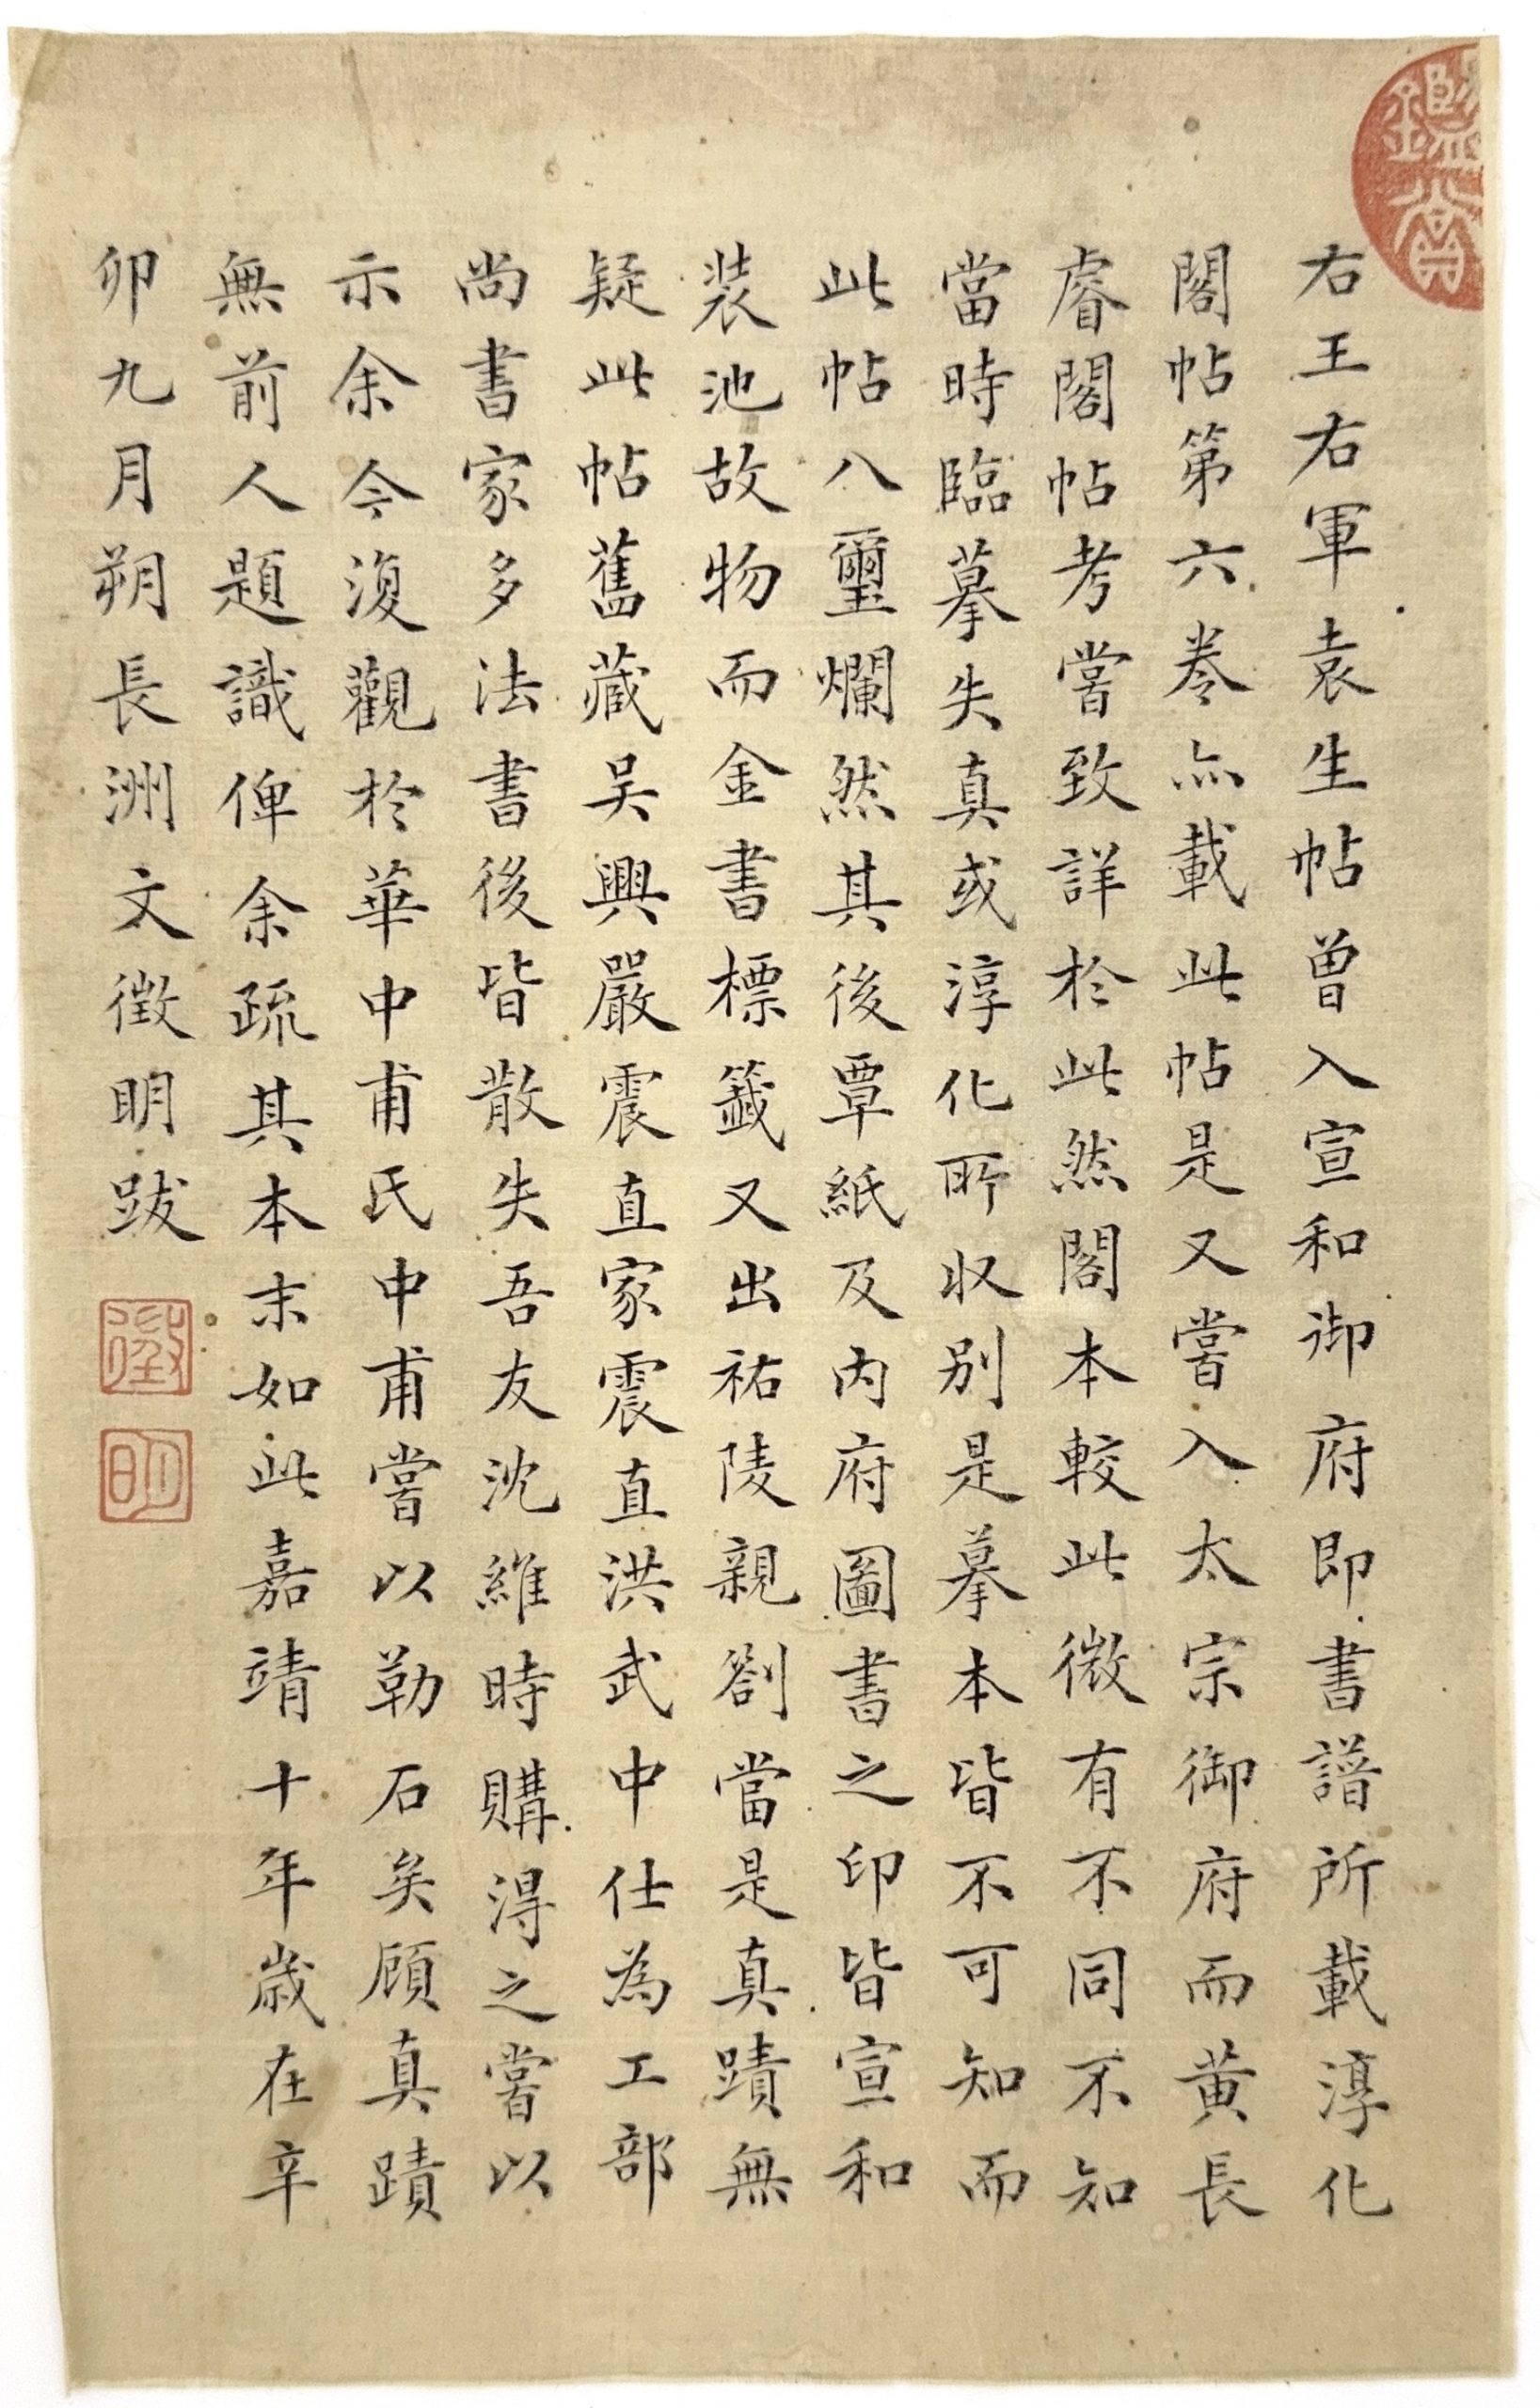 右王右軍袁生帖曾入宣和御府即書譜所載淳化
閣帖第六卷亦載此帖是又嘗入太宗御府而黄長
睿閣帖考嘗致詳於此然閣本較此微有不同不知
當時臨摹失真或淳化所收别是摹本皆不可知而
此帖八璽爛然其後覃紙及内府圖書之印皆宣和
装池故物而金書標籤又出祐陵親劄當是真蹟無
疑此帖舊藏吴興嚴震直家震直洪武中仕為工部
尚書家多法書後皆散失吾友沈維時購得之嘗以
示余今復觀於華中甫氏中甫嘗以勒石矣顧真蹟
無前人題識俾余疏其本末如此嘉靖十年歲在辛
卯九月朔長洲文徵明跋
徵
明
鑑賞